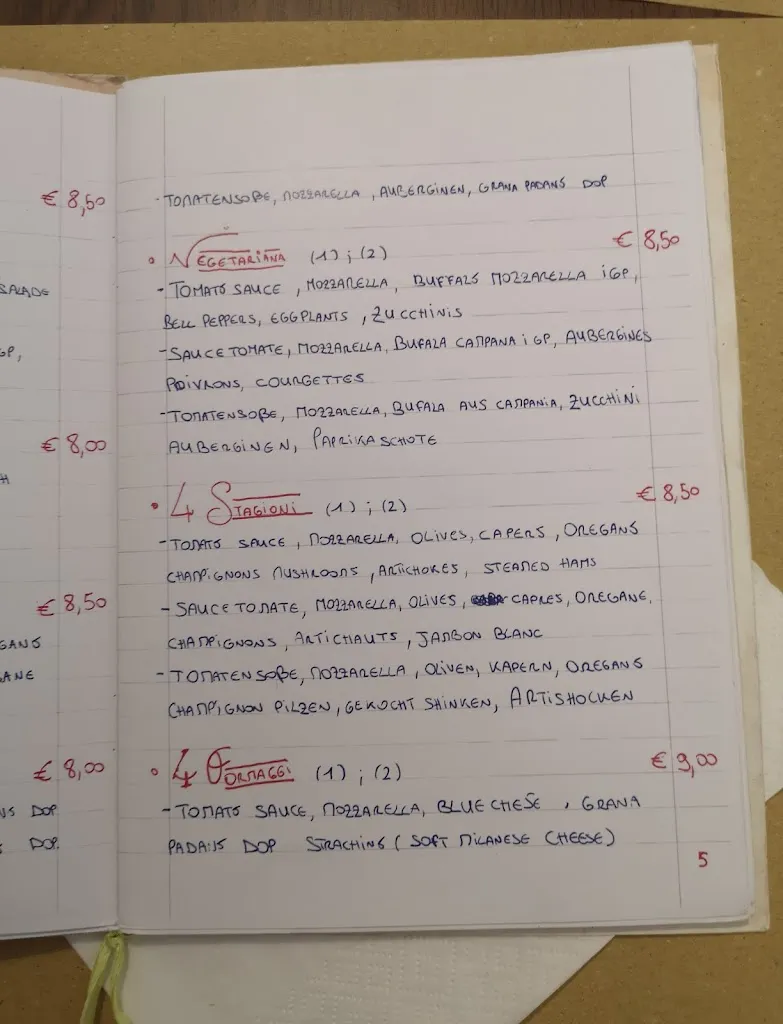 € 8,50
SALADE
GP,
€ 8,00
H
€ 8,50
GANO
ANE
€ 8,00
NO DOP
O DOP.
- TOMATENSOßE, MOZZARELLA, AUBERGINEN, GRANA PADANO DOP
• VEGETARIANA (1) ; (2) € 8,50
- TOMATO SAUCE, MOZZARELLA, BUFFALO MOZZARELLA iGP,
BELL PEPPERS, EGGPLANTS, ZUCCHINIS
- SAUCE TOMATE, MOZZARELLA, BUFALA CAMPANA i GP, AUBERGINES
POIVRONS, COURGETTES
- TOMATENSOßE, MOZZARELLA, BUFALA AUS CAMPANIA, ZUCCHINI
AUBERGINEN, PAPRIKASCHOTE
• 4 STAGIONI (1) ; (2) € 8,50
- TOMATO SAUCE, MOZZARELLA, OLIVES, CAPERS, OREGANO
CHAMPIGNONS MUSHROOMS, ARTICHOKES, STEAMED HAMS
- SAUCE TOMATE, MOZZARELLA, OLIVES, CAPRES, OREGANE,
CHAMPIGNONS, ARTICHAUTS, JAMBON BLANC
- TOMATENSOßE, MOZZARELLA, OLIVEN, KAPERN, OREGANO
CHAMPIGNON PILZEN, GEKOCHT SHINKEN, ARTISHOCKEN
• 4 FORMAGGI (1) ; (2) € 9,00
- TOMATO SAUCE, MOZZARELLA, BLUE CHESE, GRANA
PADANO DOP STRACHINO (SOFT MILANESE CHEESE)
5